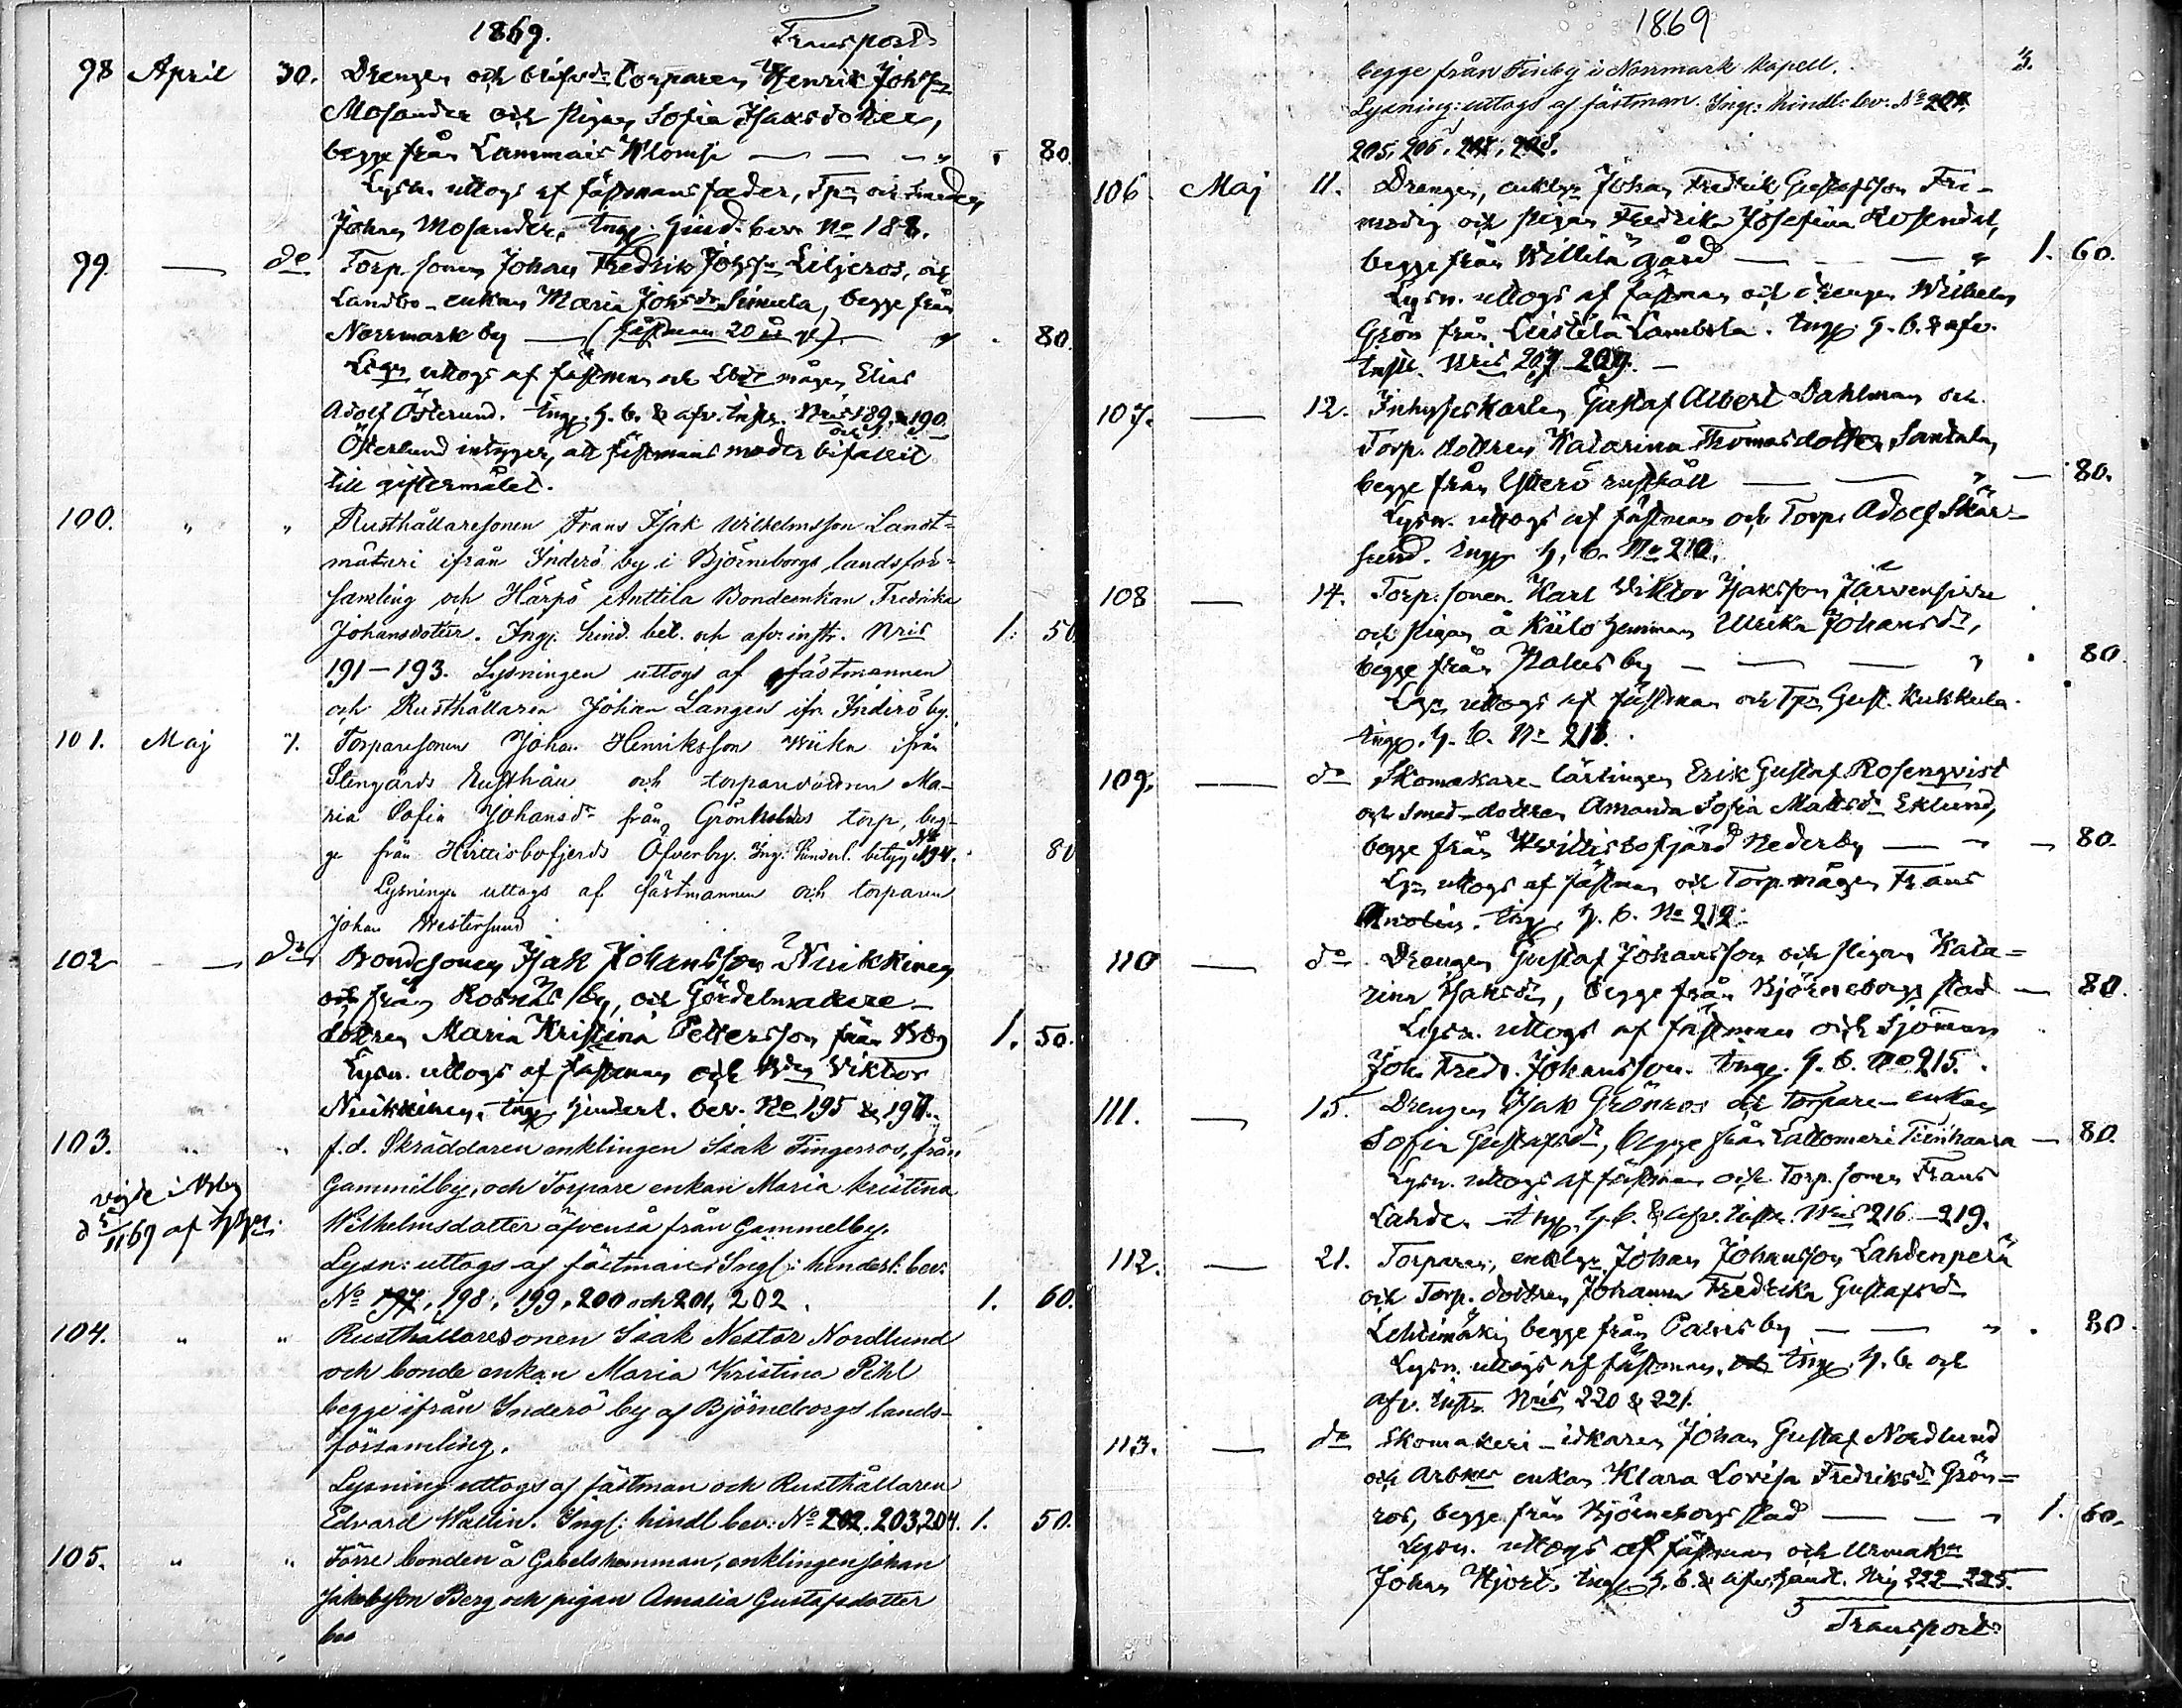 1869. Transport
98 April 30. Drengen och blifvde Torparen Henrik Johsson
Mosander och Pigan Sofia Isaksdotter,
begge från Lammais Klomsi — — — " . 80.
Lysn. uttogs af fästmans fader, Tpn och Smeden
Johan Mosander. Ingg. hind. bev. No 188.
99. — do Torp. sonen Johan Fredrik Johsson Liljeros, och
Landbo-enkan Maria Johsdr Simula, begge från
Norrmark by — (fästman 20 år g.) — " . 80.
Lysn uttogs af fästman och mågen Elias
Adolf Österlund. Ingg. h. b. & afv. instr. Nris 189 & 190.
Österlund intygger, att fästmans moder bifallit
till giftermålet.
100. " " Rusthållaresonen Frans Isak Wilhelmsson Landt-
mäteri ifrån Inderö by i Björneborgs landsför-
samling och Härpö Anttila Bondeenkan Fredrika
Johansdotter. Ing. hind. bet. och afv. instr. Nris 1. 50
191–193. Lysningen uttogs af fästmannen
och Rusthållaren Johan Langen ifr. Inderö by.
101. Maj 7. Torparesonen Johan Henriksson Wiikn ifrån
Stengårds Rusthåll och torparedottren Ma-
ria Sofia Johansdr från Grönholms torp, beg-
ge från Hvittisbofjerds Öfverby. Ing. hinderl. betyg No 194. 80
Lysningen uttogs af fästmannen och torparen
Johan Westersund
102 — do Bondesonen Isak Johansson Niukkinen
från Rosnäs by, och Gördelmakare-
dottren Maria Kristina Pettersson från Bbg 1. 50.
Lysn. uttogs af fästman och Bden Viktor
Niukkinen. Ingg hinderl. bev. No 195 & 197.
103. " " f.d. Skräddaren enklingen Isak Fingerroos, från
Gammilby, och Torpare enkan Maria Kristina
vigde i Bbg
d 5/11 69 af
Wilhelmsdotter äfvenså från Gammelby.
Lysn: uttogs af fästman: Ingf: hinderl: bev:
No 197, 198, 199, 200 och 201, 202. 1. 60.
104. " " Rusthållaresonen Isak Nestor Nordlund
och bonde enkan Maria Kristina Pihl
begge ifrån Inderö by af Björneborgs lands-
församling.
Lysning uttogs af fästman och Rusthållaren
Edvard Wallin. Ingf: hindl bev: No 202. 203, 204. 1. 50.
105. " " Förre bonden å Gabels hemman, enklingen Johan
Jakobsson Berg och pigan Amalia Gustafsdotter
1869
begge från Finby i Norrmark Kapell. 3.
Lysning: uttogs af fästman. Ing: hindl: bev: No 204,
205, 206, 207, 208.
106 Maj 11. Drengen, enklgn Johan Fredrik Gustafsson Fri-
modig och pigan Fredrika Josefina Rosendal,
begge från Willilä gård — — — " 1. 60.
Lysn. uttogs af fästman och drengen Wilhelm
Grön från Leistilä Lambila. Ingg. h. b. & afv.
instr. Nris 207–209. —
107. — 12. Inhyseskarlen Gustaf Albert Dahlman och
Torp. dottren Katarina Thomasdotter Santala,
begge från Ytterö rusthåll — — " — 80.
Lysn. uttogs af fästman och Torp. Adolf Skär-
lund. Ingg h. b. No 210.
108 — 14. Torp. sonen Karl Viktor Isaksson Järvensivu
och pigan å Kiilo hemman Ulrika Johansdr,
begge från by — — — " . 80.
Lysn uttogs af fästman och Tpn Gust. Kukkula.
Ingg. h. b. No 211.
109. — do Skomakare-lärlingen Erik Gustaf Rosenqvist
och Smed-dottren Amanda Sofia Mattsdr Eklund,
begge från Hvittisbofjärd Nederby — " — 80.
Lysn uttogs af fästman och Torp. mågen Frans
Anolin. Ing. h. b. No 212.
110 — do Drengen Gustaf Johansson och pigan Kata-
rina Isaksdr, begge från Björneborgs stad — 80.
Lysn. uttogs af fästman och Sjöman
Joh. Fredr. Johansson. Ingg. h. b. No 215.
111. — 15. Drengen Isak Grönroos och Torpare-enkan
Sofia Gustafsdr, begge från Lattomeri Tiinhaara — 80.
Lysn. uttogs af fästman och Torp. sonen Frans
Lahde. Ingg. h. b. & afv. instr. Nris 216–219.
112. — 21. Torparen, enklgn Johan Johansson Lahdenperä
och Torp. dottren Johanna Fredrika Gustafsdr
Lehtimäki, begge från Påmis by — — " . 80.
Lysn. uttogs af fästman. Ingg. h. b. och
afv. instr. Nris 220 & 221.
113. — do Skomakeri-idkaren Johan Gustaf Nordlund
och Arbkar enkan Klara Lovisa Fredriksdr Grön-
ros, begge från Björneborgs stad — — " 1. 60.
Lysn. uttogs af fästman och Urmakr
Johan Hjort. Ingg h. b. & afv. handl. Nris 222–225.
Transport